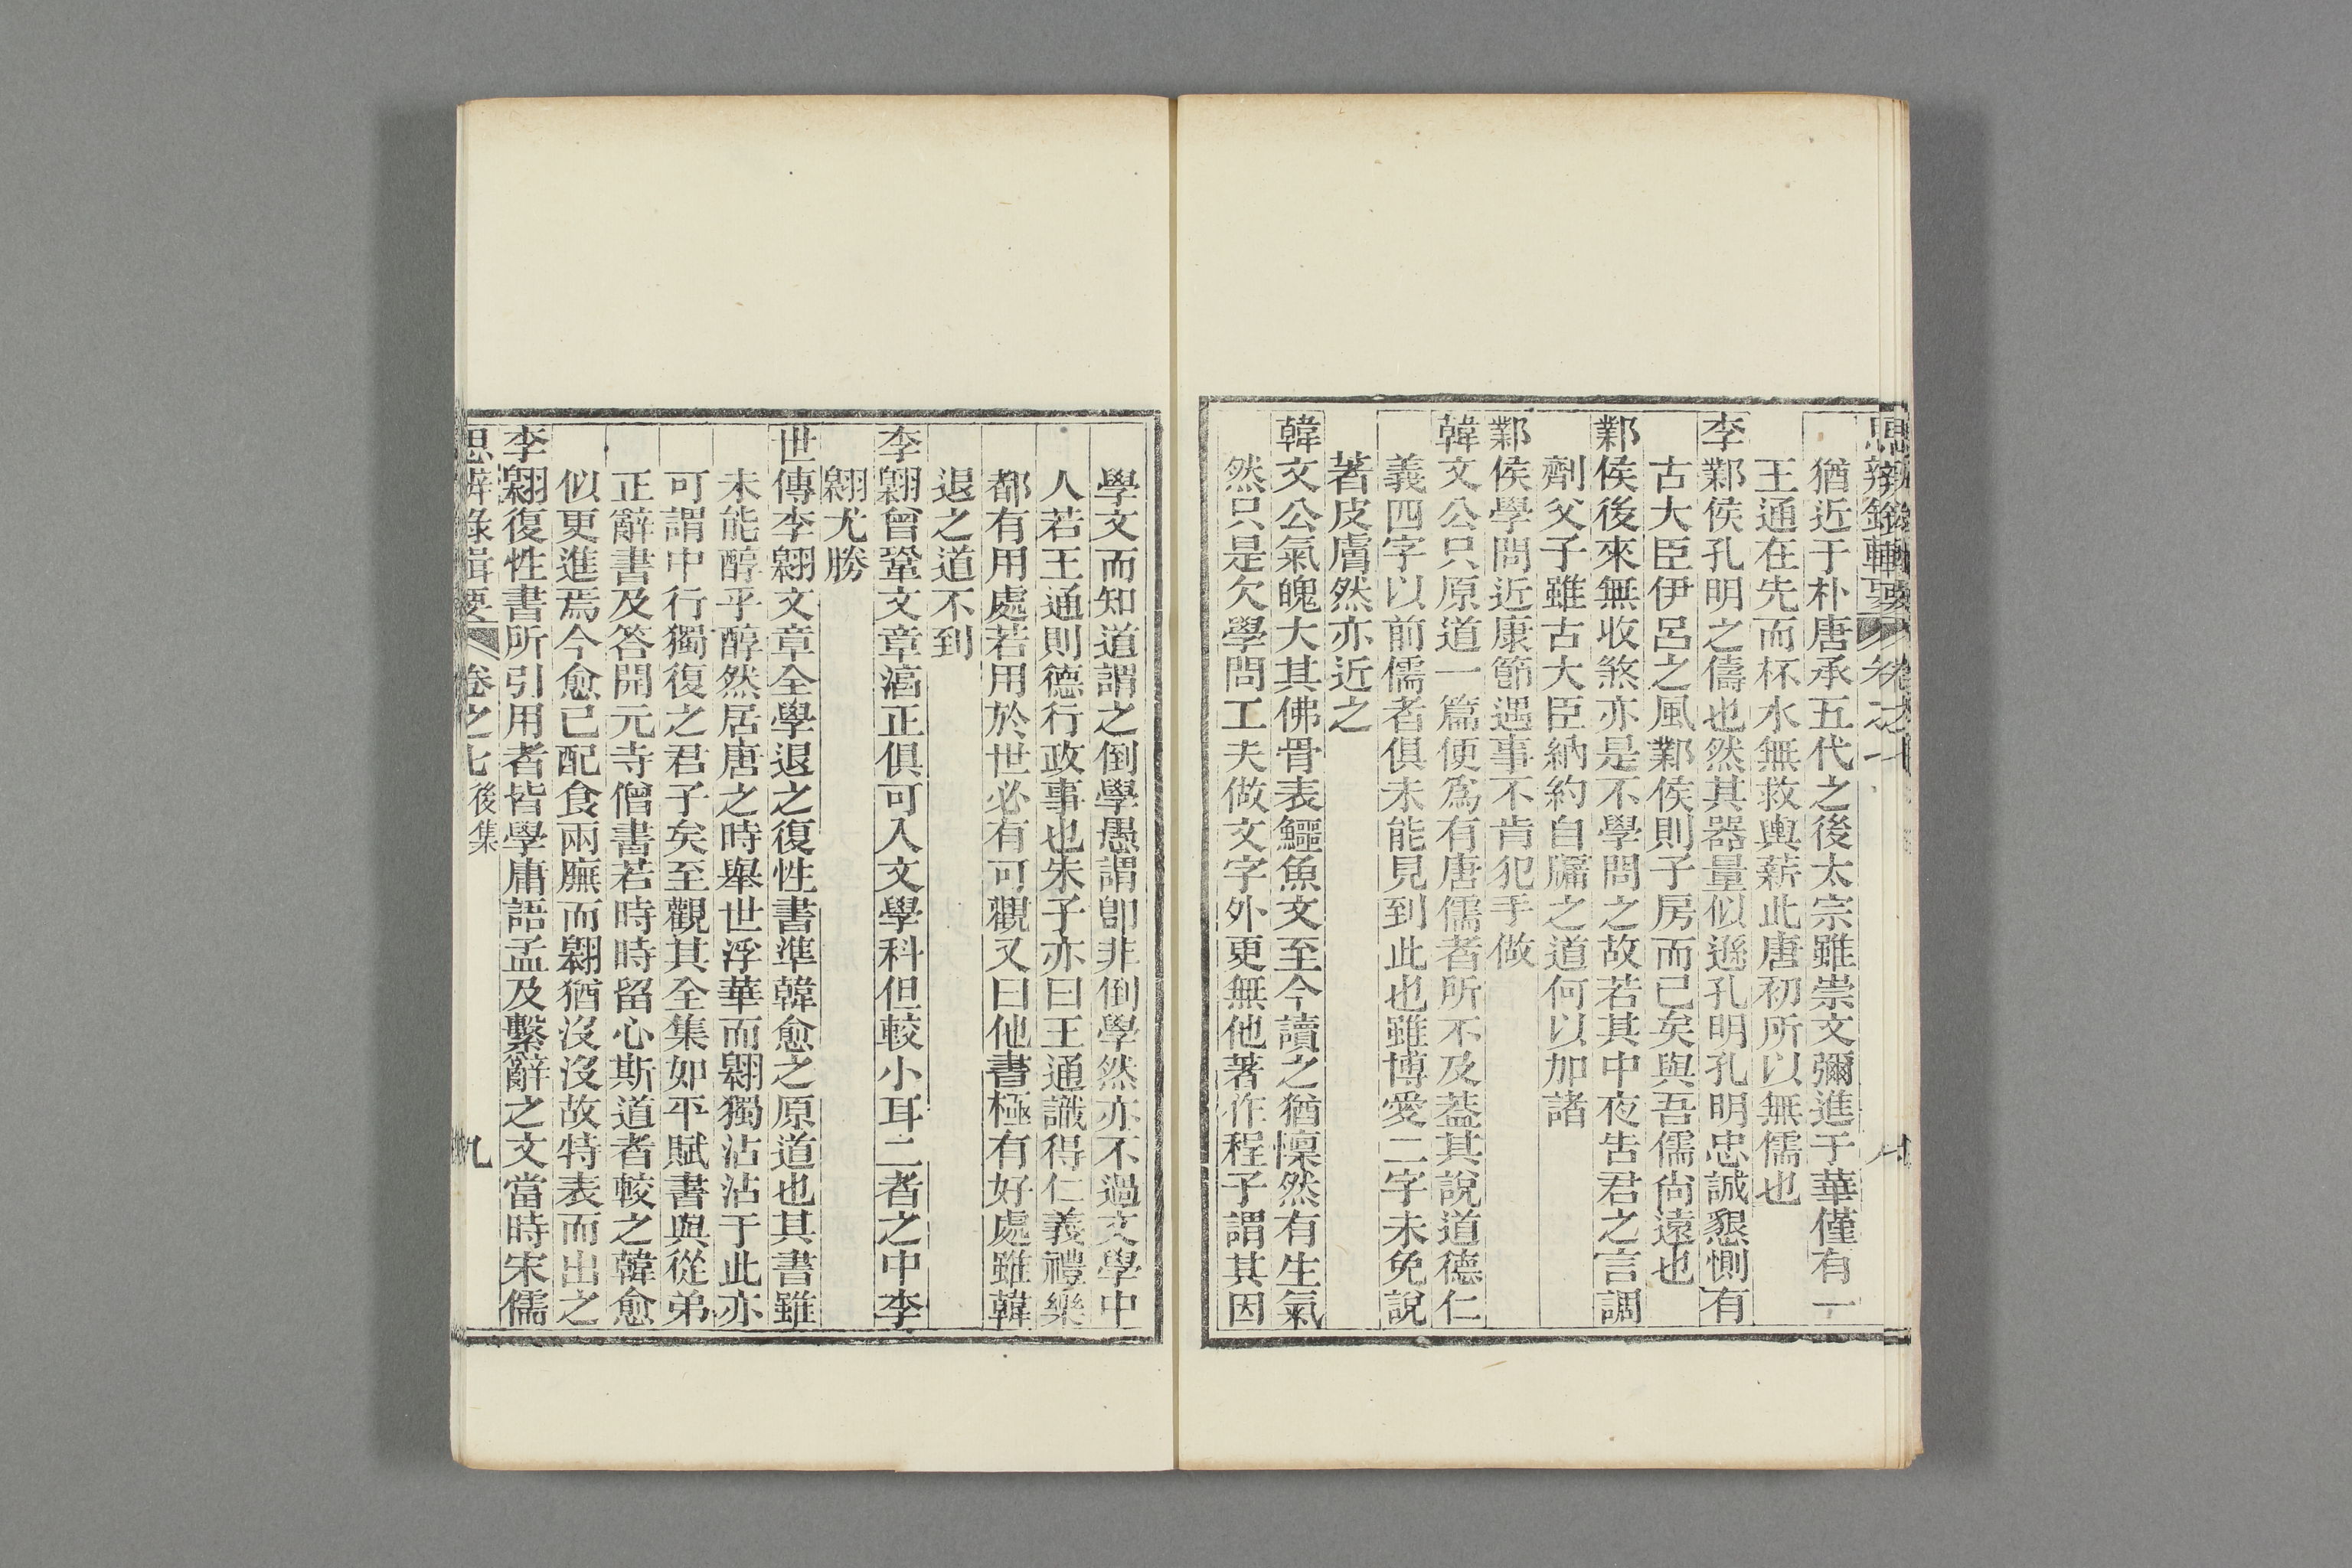 思辨錄輯要 卷之七
猶近于朴唐承五代之後太宗雖崇文彌進于華僅有一
王通在先而杯水無救輿薪此唐初所以無儒也
李鄴侯孔明之儔也然其器量似遜孔明孔明忠誠懇惻有
古大臣伊呂之風鄴侯則子房而已矣與吾儒尙遠也
鄴侯後來無收煞亦是不學問之故若其中夜告君之言調
劑父子雖古大臣納約自牖之道何以加諸
鄴侯學問近康節遇事不肯犯手做
韓文公只原道一篇便爲有唐儒者所不及葢其說道德仁
義四字以前儒者俱未能見到此也雖博愛二字未免說
著皮膚然亦近之
韓文公氣魄大其佛骨表鱷魚文至今讀之猶懍然有生氣
然只是欠學問工夫做文字外更無他著作程子謂其因
學文而知道謂之倒學愚謂卽非倒學然亦不過文學中
人若王通則德行政事也朱子亦曰王通識得仁義禮樂
都有用處若用於世必有可觀又曰他書極有好處雖韓
退之道不到
李翺曾鞏文章滀正俱可入文學科但較小耳二者之中李
翺尤勝
世傳李翺文章全學退之復性書準韓愈之原道也其書雖
未能醇乎醇然居唐之時舉世浮華而翺獨沾沾于此亦
可謂中行獨復之君子矣至觀其全集如平賦書與從弟
正辭書及答開元寺僧書若時時留心斯道者較之韓愈
似更進焉今愈已配食兩廡而翺猶沒沒故特表而出之
李翺復性書所引用者皆學庸語孟及繫辭之文當時宋儒
思辨錄輯要 卷之七 後集 九